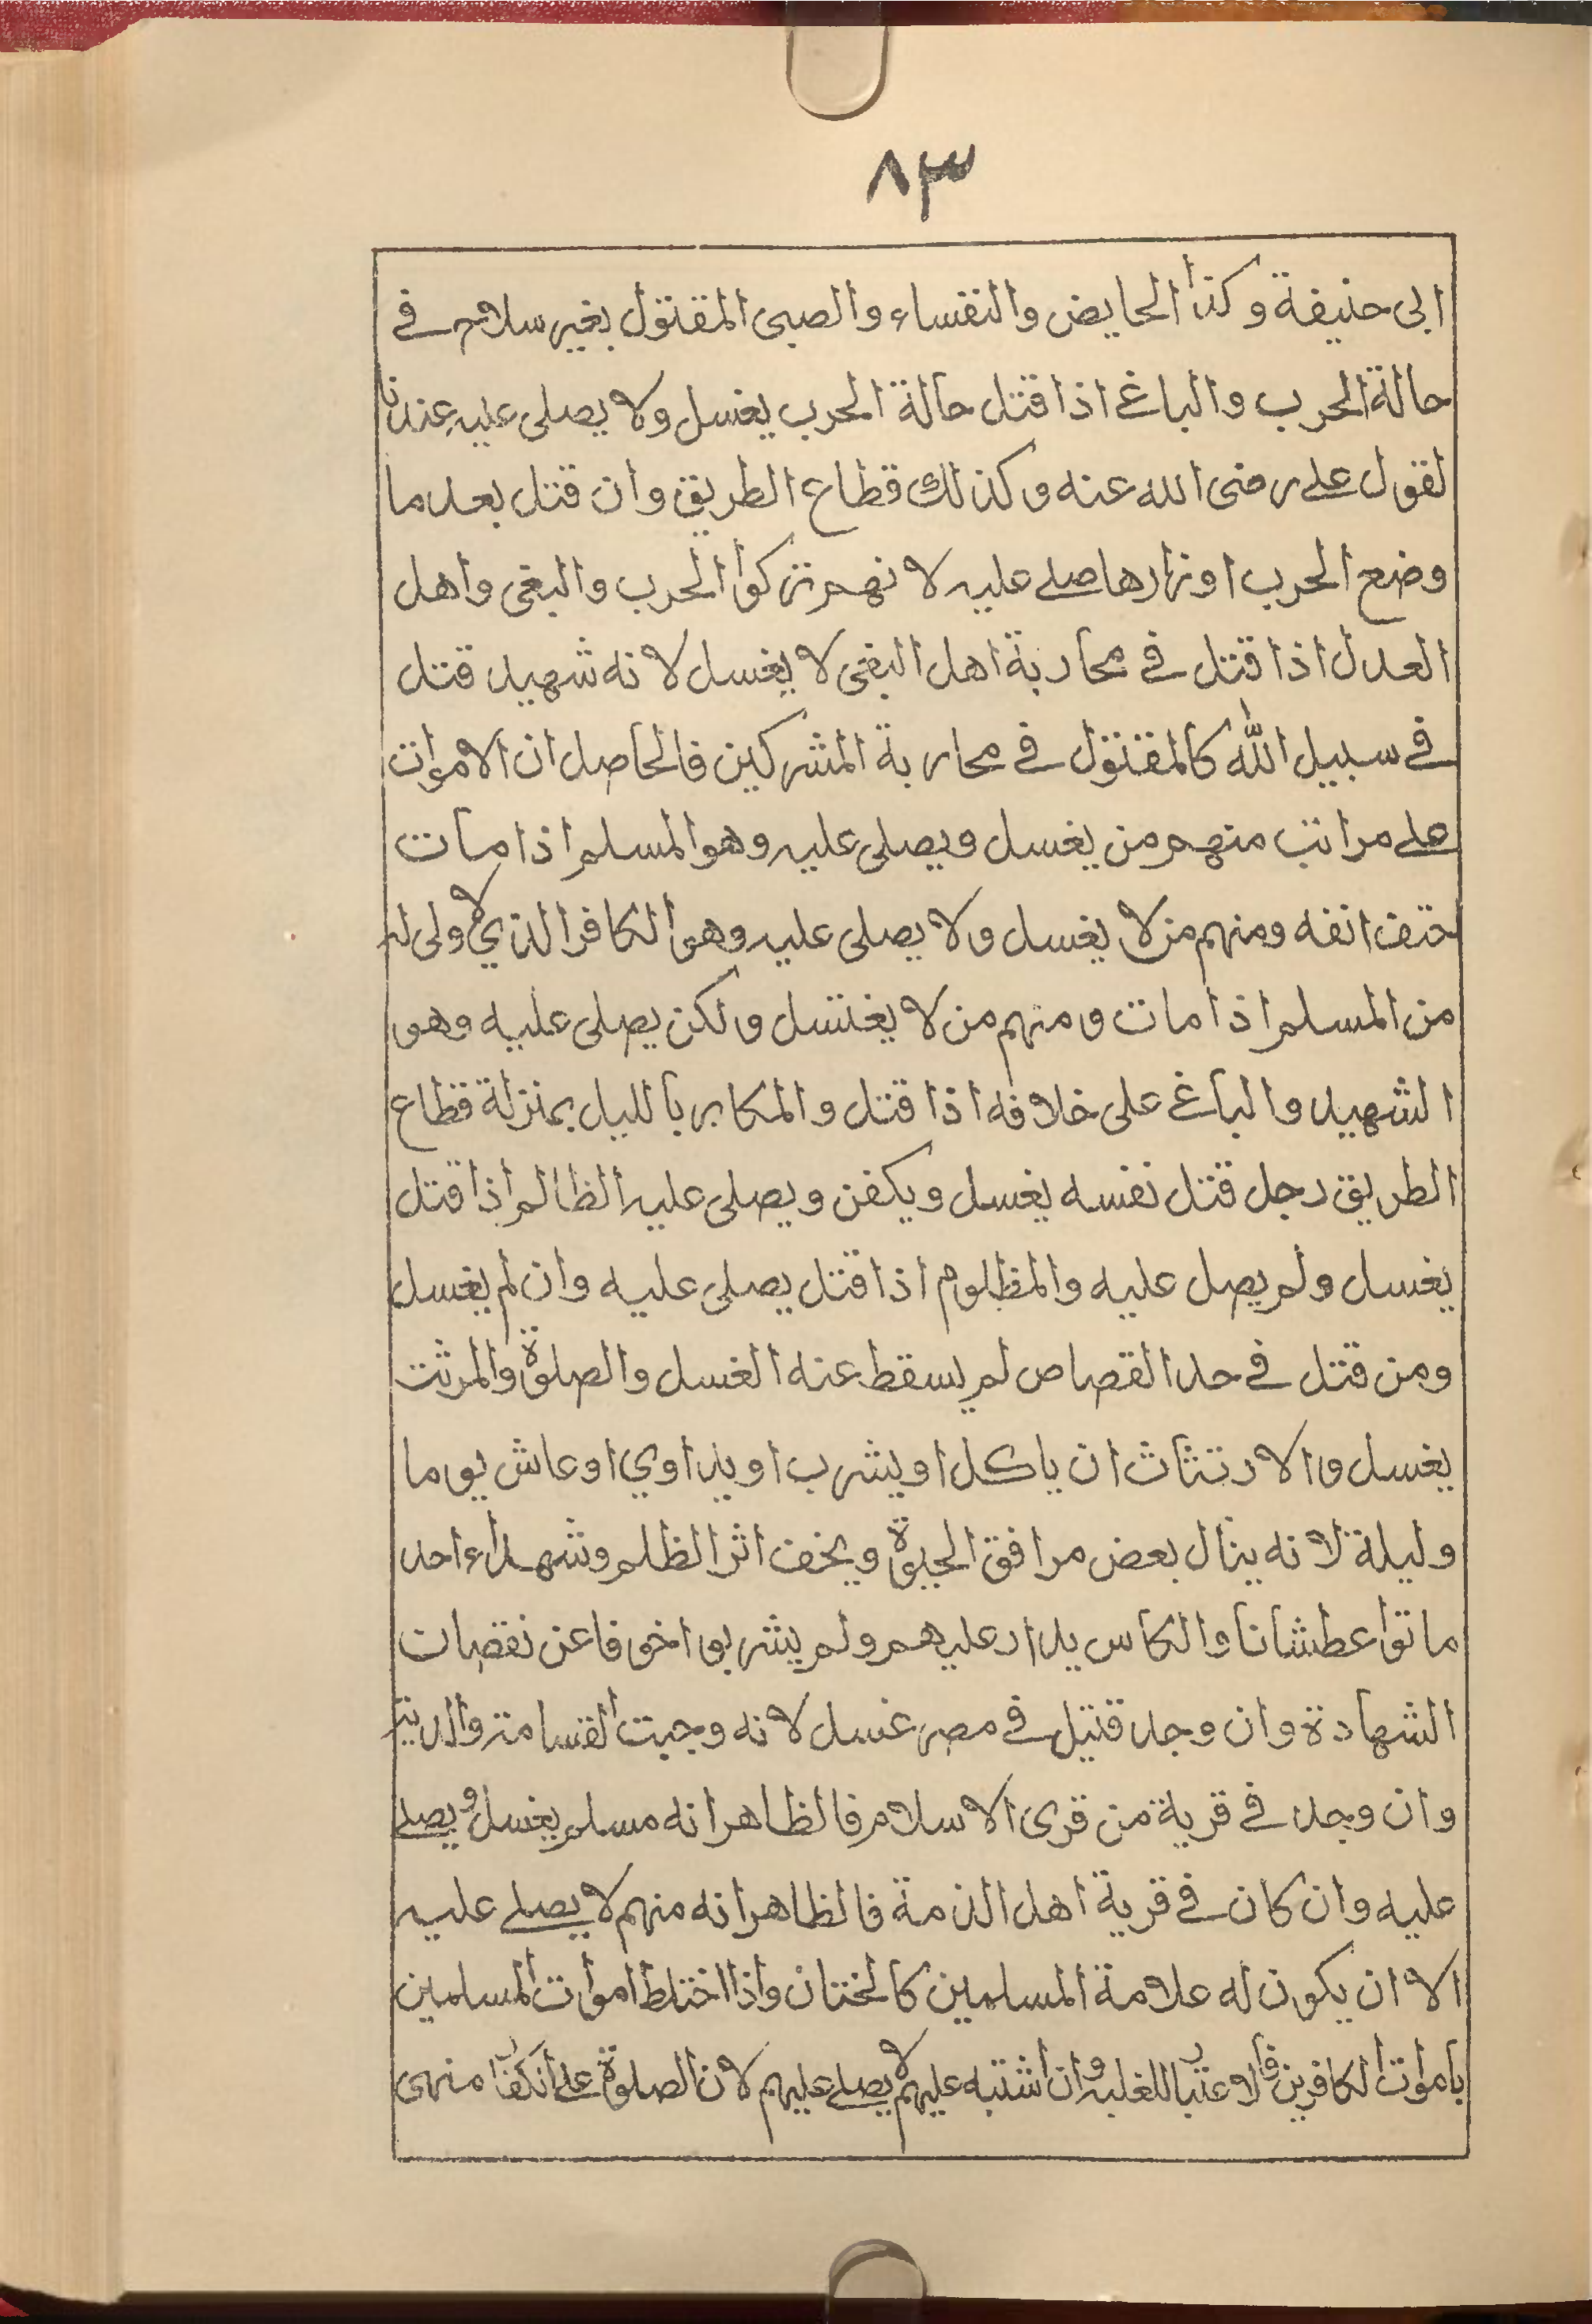 ٨٣
ابى حنيفة وكذا الحايض والنفساء والصبى المقتول بغير سلاح فے
حالة الحرب والباغے اذا قتل حالة الحرب يغسل ولا يصلى عليه عندنا
لقول علے رضى الله عنه وكذلك قطاع الطريق وان قتل بعد ما
وضع الحرب اوزارها صلے عليه لانهم تركوا الحرب والبغى واهل
العدل اذا قتل فے محاربة اهل البغى لا يغسل لانه شهيد قتل
فے سبيل الله كالمقتول فے محاربة المشركين فالحاصل ان الاموات
علے مراتب منهم من يغسل ويصلى عليه وهو المسلم اذا مات
حتف انفه ومنهم من لا يغسل ولا يصلى عليه وهو الكافر الذي لا ولى له
من المسلم اذا مات ومنهم من لا يغتسل ولكن يصلى عليه وهو
الشهيد والباغے على خلافه اذا قتل والمكابر بالليل بمنزلة قطاع
الطريق رجل قتل نفسه يغسل ويكفن ويصلى عليه الظالم اذا قتل
يغسل ولم يصل عليه والمظلوم اذا قتل يصلى عليه وان لم يغسل
ومن قتل فے حد القصاص لم يسقط عنه الغسل والصلوة والمرثث
يغسل والارتثاث ان ياكل او يشرب او يداوي او عاش يوما
وليلة لانه ينال بعض مرافق الحيوة ويخف اثر الظلم وشهداء احد
ماتوا عطشانا والكاس يدار عليهم ولم يشربوا خوفا عن نقصات
الشهادة وان وجد قتيل فے مصر غسل لانه وجبت القسامة والدية
وان وجد فے قرية من قرى الاسلام فالظاهر انه مسلم يغسل ويصلے
عليه وان كان فے قرية اهل الذمة فالظاهر انه منهم لا يصلے عليه
الا ان يكون له علامة المسلمين كالختان واذا اختلط اموات المسلمين
باموات الكافرين فالاعتبار للغلبة وان اشتبه عليهم لا يصلے عليهم لان الصلوة علے الكفار منهى